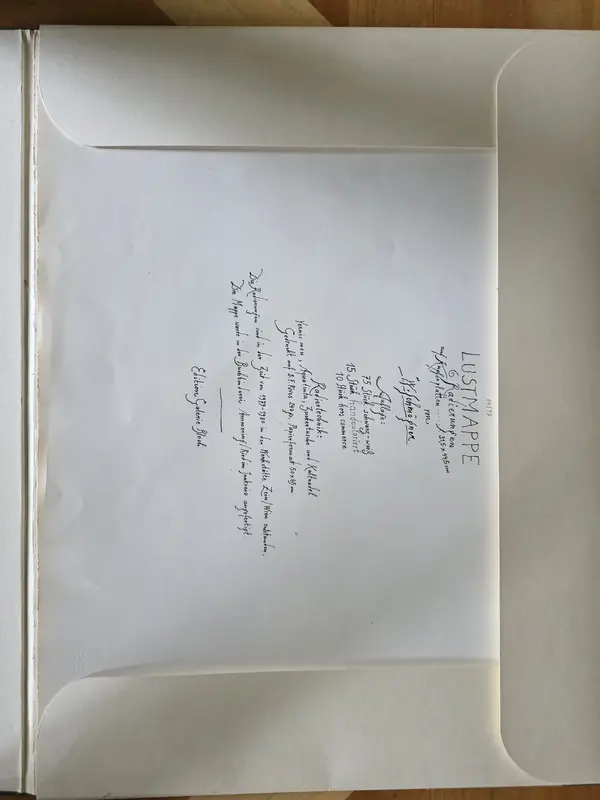 LUSTMAPPE
6 Radierungen
auf Kupferplatten .... 31,5 x 49,5 cm
von
Auflage:
75 Stück schwarz-weiß
15 Stück handcoloriert
10 Stück hors commerce
Radiertechnik:
Vernis mou, Aquatinta, Zuckertusche und Kaltnadel
Gedruckt auf
Die Radierungen sind in der Zeit von 1979-1980 in der Werkstätte Wien entstanden.
Die Mappe wurde in der Buchbinderei Ried im Innkreis angefertigt.
Edition Galerie